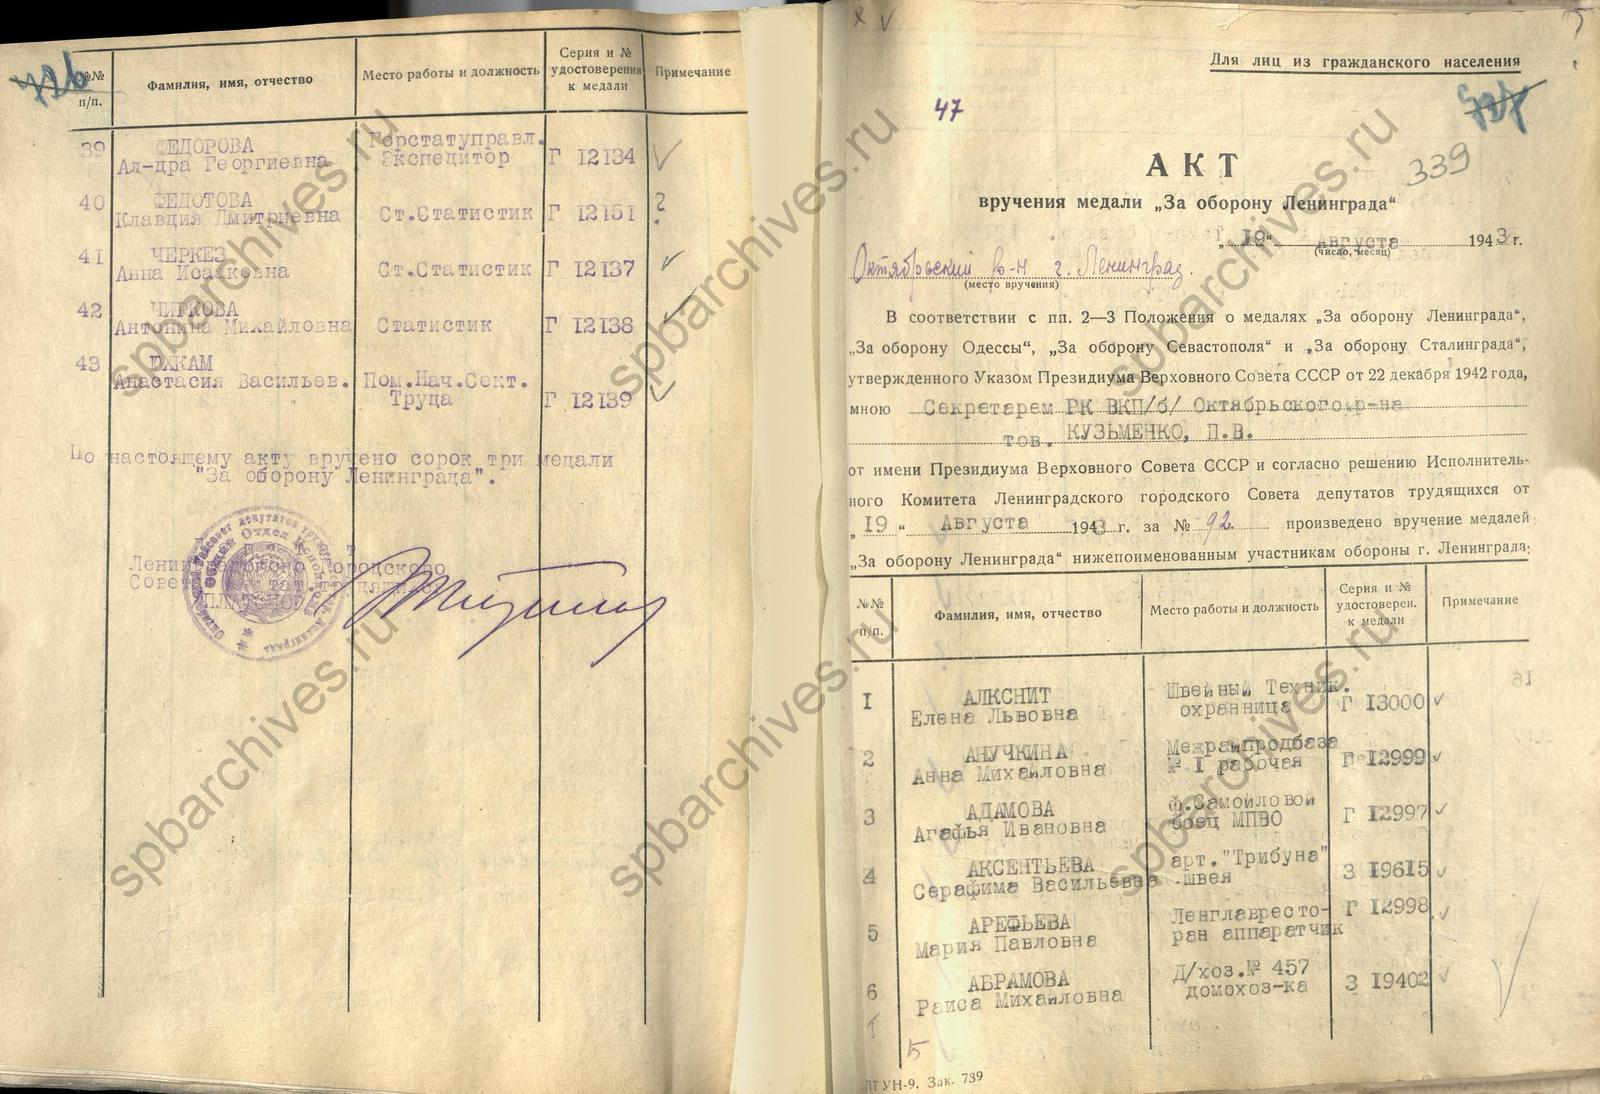 №№
п/п.
Фамилия, имя, отчество
Место работы и должность
Серия и №
удостоверения
к медали
Примечание
39 ФЕДОРОВА
Ал-дра Георгиевна
Горстатуправл.
Экспедитор
Г 12134
40 ФЕДОТОВА
Клавдия Дмитриевна
Ст.Статистик
Г 12151
?
41 ЧЕРКЕЗ
Анна Исааковна
Ст.Статистик
Г 12137
42 ЧИРКОВА
Антонина Михайловна
Статистик
Г 12138
43
Анастасия Васильев.
Пом.Нач.Сект.
Труда
Г 12139
По настоящему акту вручено сорок три медали
"За оборону Ленинграда".
Для лиц из гражданского населения
47
339
АКТ
вручения медали „За оборону Ленинграда“
„19“ Августа 1943 г.
(число, месяц)
Октябрьский р-н г. Ленинград.
(место вручения)
В соответствии с пп. 2—3 Положения о медалях „За оборону Ленинграда“,
„За оборону Одессы“, „За оборону Севастополя“ и „За оборону Сталинграда“,
утвержденного Указом Президиума Верховного Совета СССР от 22 декабря 1942 года,
мною Секретарем РК ВКП/б/ Октябрьского р-на
тов. КУЗЬМЕНКО, П.В.
от имени Президиума Верховного Совета СССР и согласно решению Исполнитель-
ного Комитета Ленинградского городского Совета депутатов трудящихся от
„19“ Августа 1943 г. за № 92 произведено вручение медалей
„За оборону Ленинграда“ нижепоименованным участникам обороны г. Ленинграда:
№№
п/п.
Фамилия, имя, отчество
Место работы и должность
Серия и №
удостоверен.
к медали
Примечание
1 АЛКСНИТ
Елена Львовна
Швейный Техник.
охранница
Г 13000
2 АНУЧКИНА
Анна Михайловна
Межрайпродбаза
№ 1 рабочая
Г 12999
3 АДАМОВА
Агафья Ивановна
ф.Самойловой
боец МПВО
Г 12997
4 АКСЕНТЬЕВА
Серафима Васильевна
арт."Трибуна"
швея
З 19615
5 АРЕФЬЕВА
Мария Павловна
Ленглавресто-
ран аппаратчик
Г 12998
6 АБРАМОВА
Раиса Михайловна
Д/хоз.№ 457
домохоз-ка
З 19402
5
УН-9. Зак. 739
spbarchives.ru
spbarchives.ru
spbarchives.ru
spbarchives.ru
spbarchives.ru
spbarchives.ru